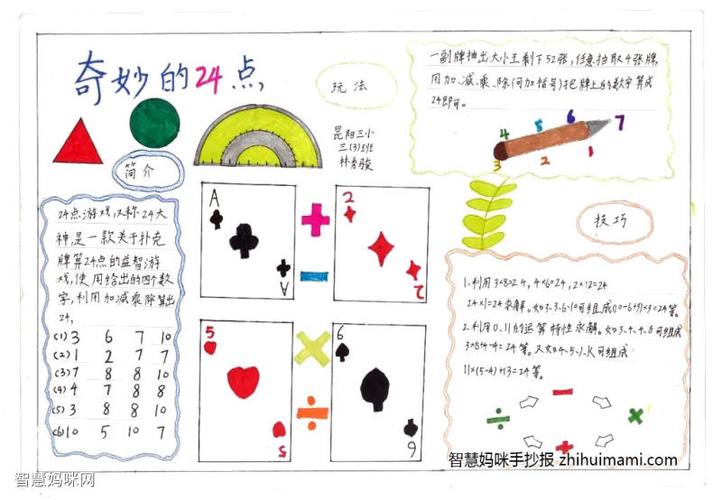 奇妙的24点
玩法
一副牌抽出大小王剩下52张,任意抽取4张牌,
用加、减、乘、除(可加括号)把牌上的数字算成
24即可。
4 5 6 7
3 2 1
昆阳三小
三(3)班
简介
24点游戏,又称24大
神,是一款关于扑克
牌算24点的益智游
戏,使用给出的四个数
字,利用加减乘除算出
24,
(1) 3 6 7 10
(2) 1 2 7 7
(3) 7 8 8 10
(4) 4 7 8 8
(5) 3 8 8 10
(6) 10 5 10 7
A
A
+
2
2
−
5
5
×
6
6
÷
技巧
1、利用3×8=24, 4×6=24, 2×12=24
24×1=24求解。如3、3、6、10可组成(10-6÷3)×3=24等。
2、利用0、11的运算特性求解。如3、4、4、8可组成
3×8+4-4=24等。又如4、5、1、K可组成
11×(5-4)+13=24等。
÷ − × +
智慧妈咪网
智慧妈咪手抄报 zhihuimami.com